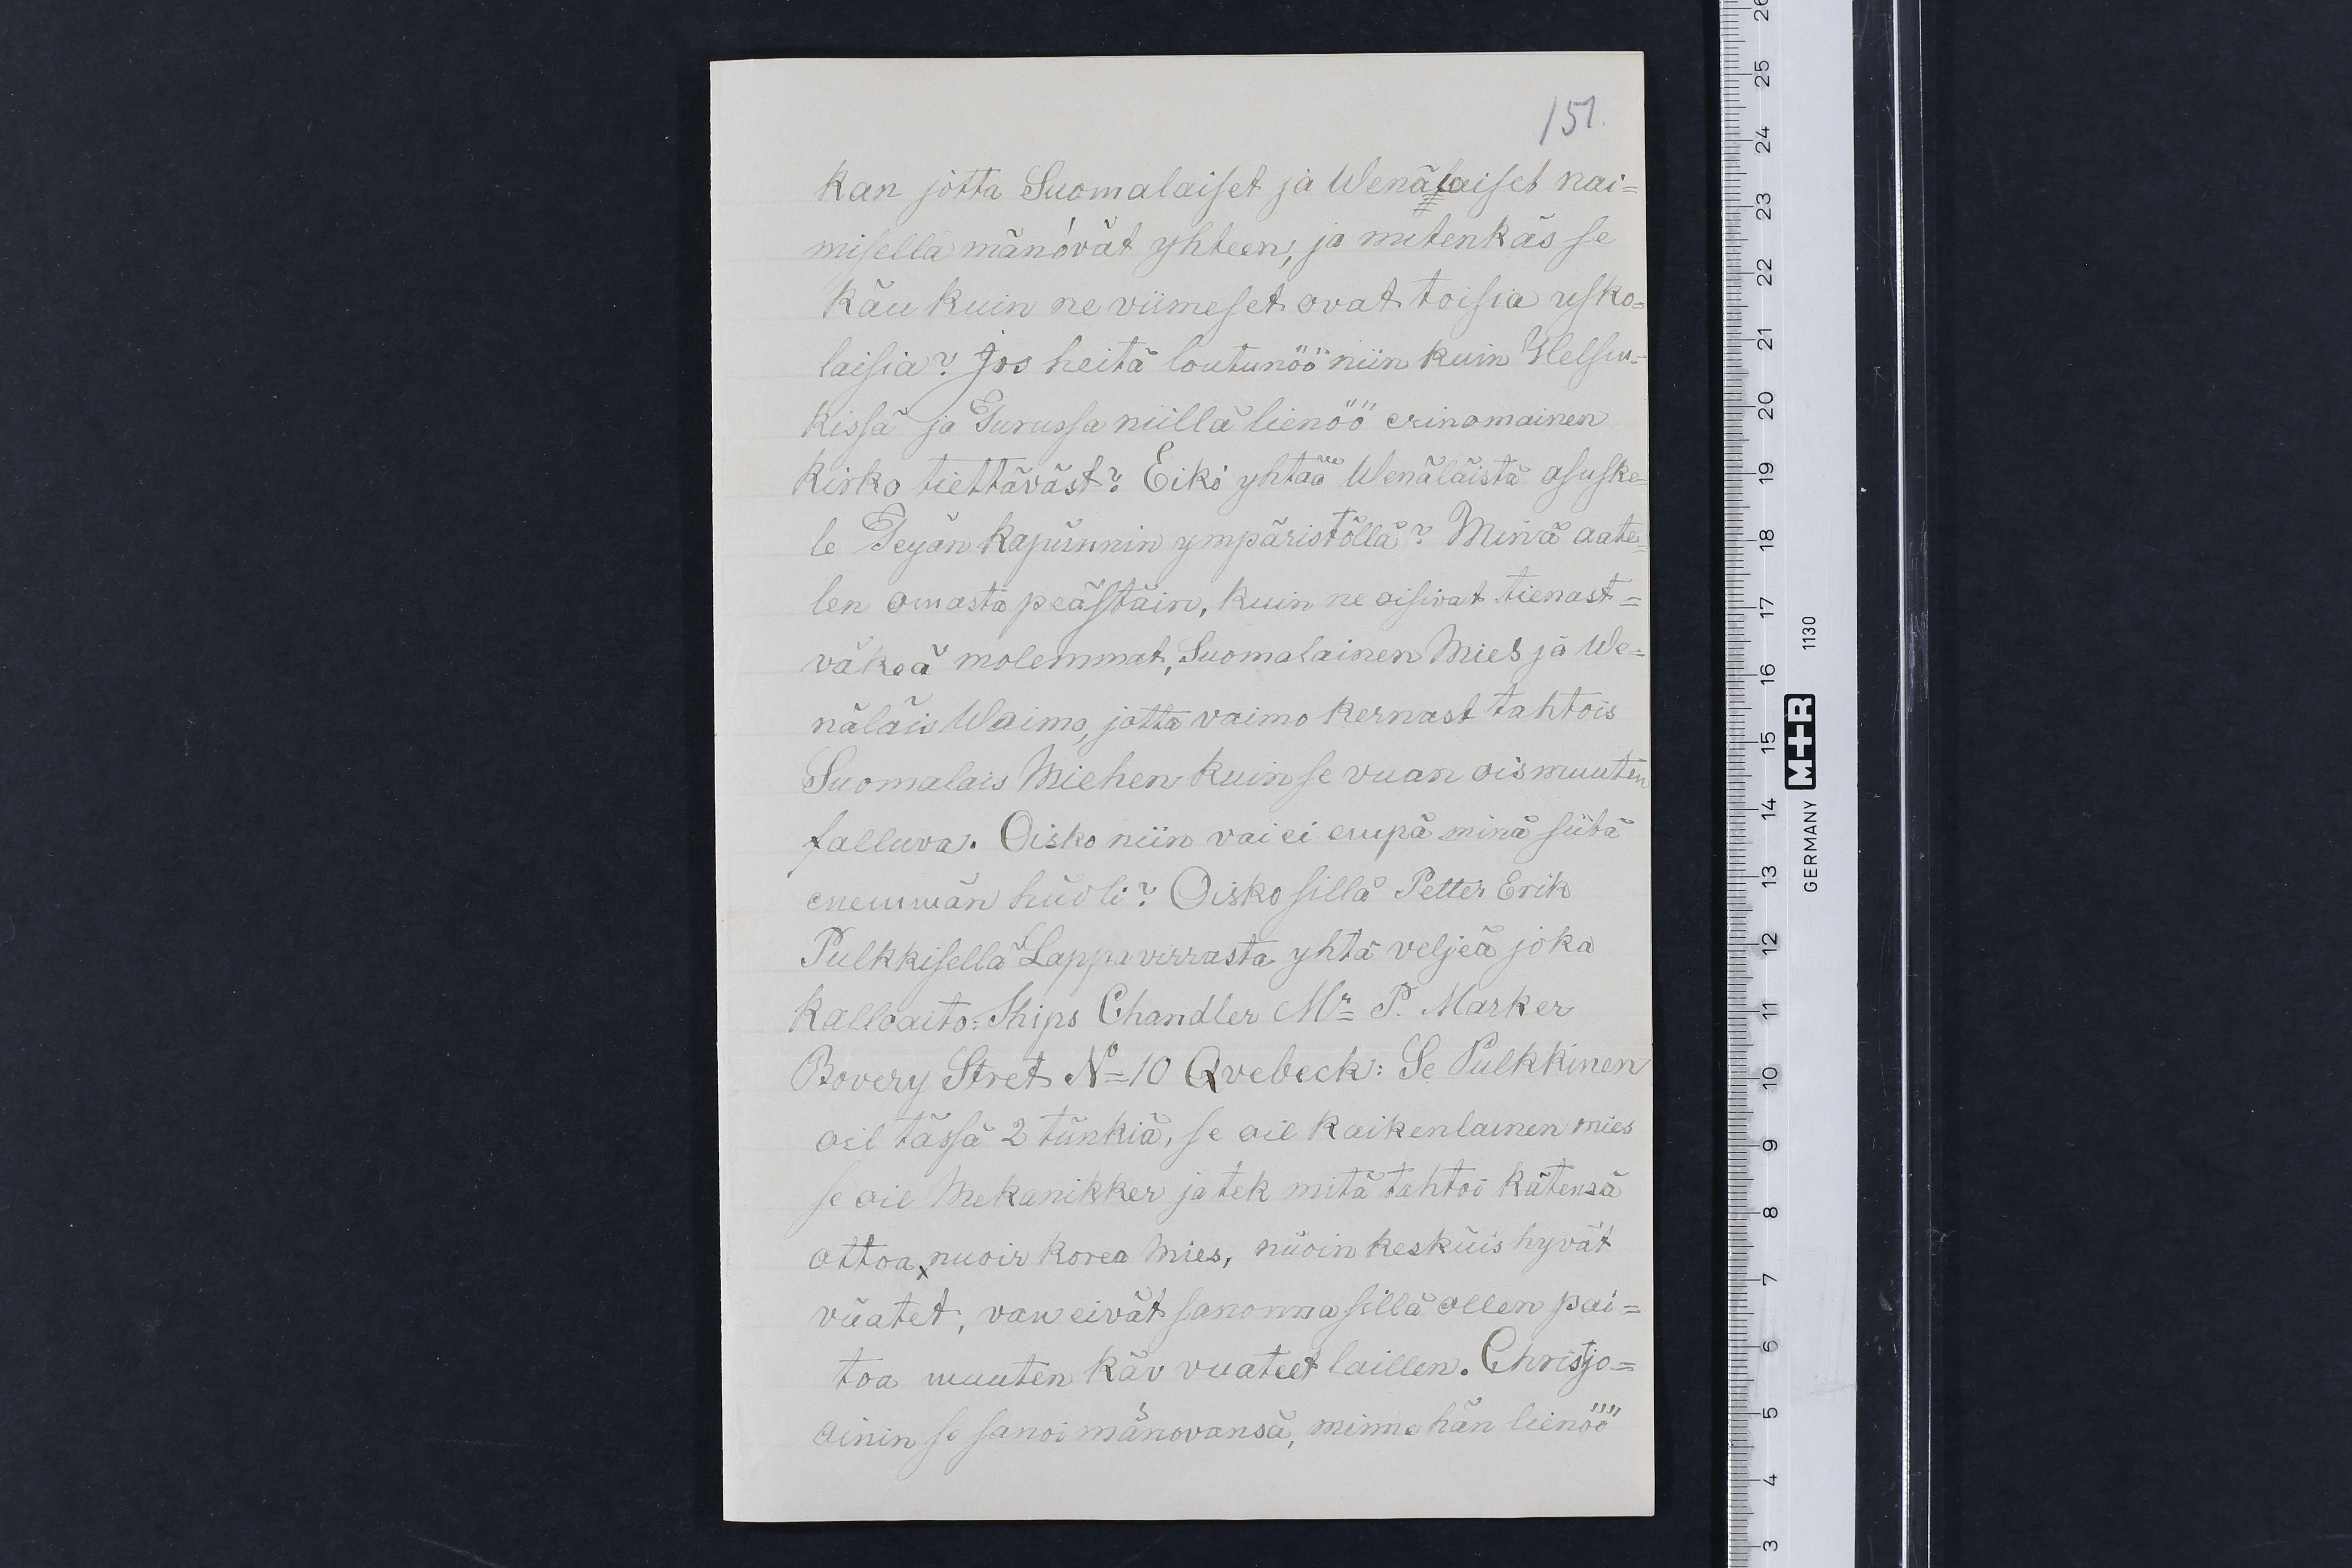 151.
kan jotta Suomalaiset ja Wenäläiset nai=
misellä mänövät yhteen, ja mitenkäs se
käu kuin ne viimeset ovat toisia usko=
laisia? Jos heitä loutunöö niin kuin Helsin=
kissä ja Turussa niillä lienöö erinomainen
kirko tiettäväst? Eikö yhtää Wenäläistä asuske=
le Teyän kapunnin ympäristöllä? Minä aate=
len omasta peästäin, kuin ne oisivat tienast=
väkeä molemmat, Suomalainen Mies ja We=
näläis Waimo, jotta vaimo kernast tahtois
Suomalais Miehen kuin se vuan ois muuten
falluva. Oisko niin vai ei enepä minä siitä
enemmän huoli? Oisko sillä Petter Erik
Pulkkisella Lappavirrasta yhtä veljeä joka
kalloaito: Ships Chandler Mr= P. Marker
Bovery Stret No=10 Qvebeck: Se Pulkkinen
oil tässä 2 tünkiä, se oil kaikenlainen mies
se oil Mekanikker ja tek mitä tahtoi kätensä
ottoa, nuoir korea Mies, nuoin keskuis hyvät
vuatet, van eivät sanonna sillä ollen pai=
toa muuten käv vuateet laillen. Christjo=
ainin se sanoi mänovansä, minne hän lienöö